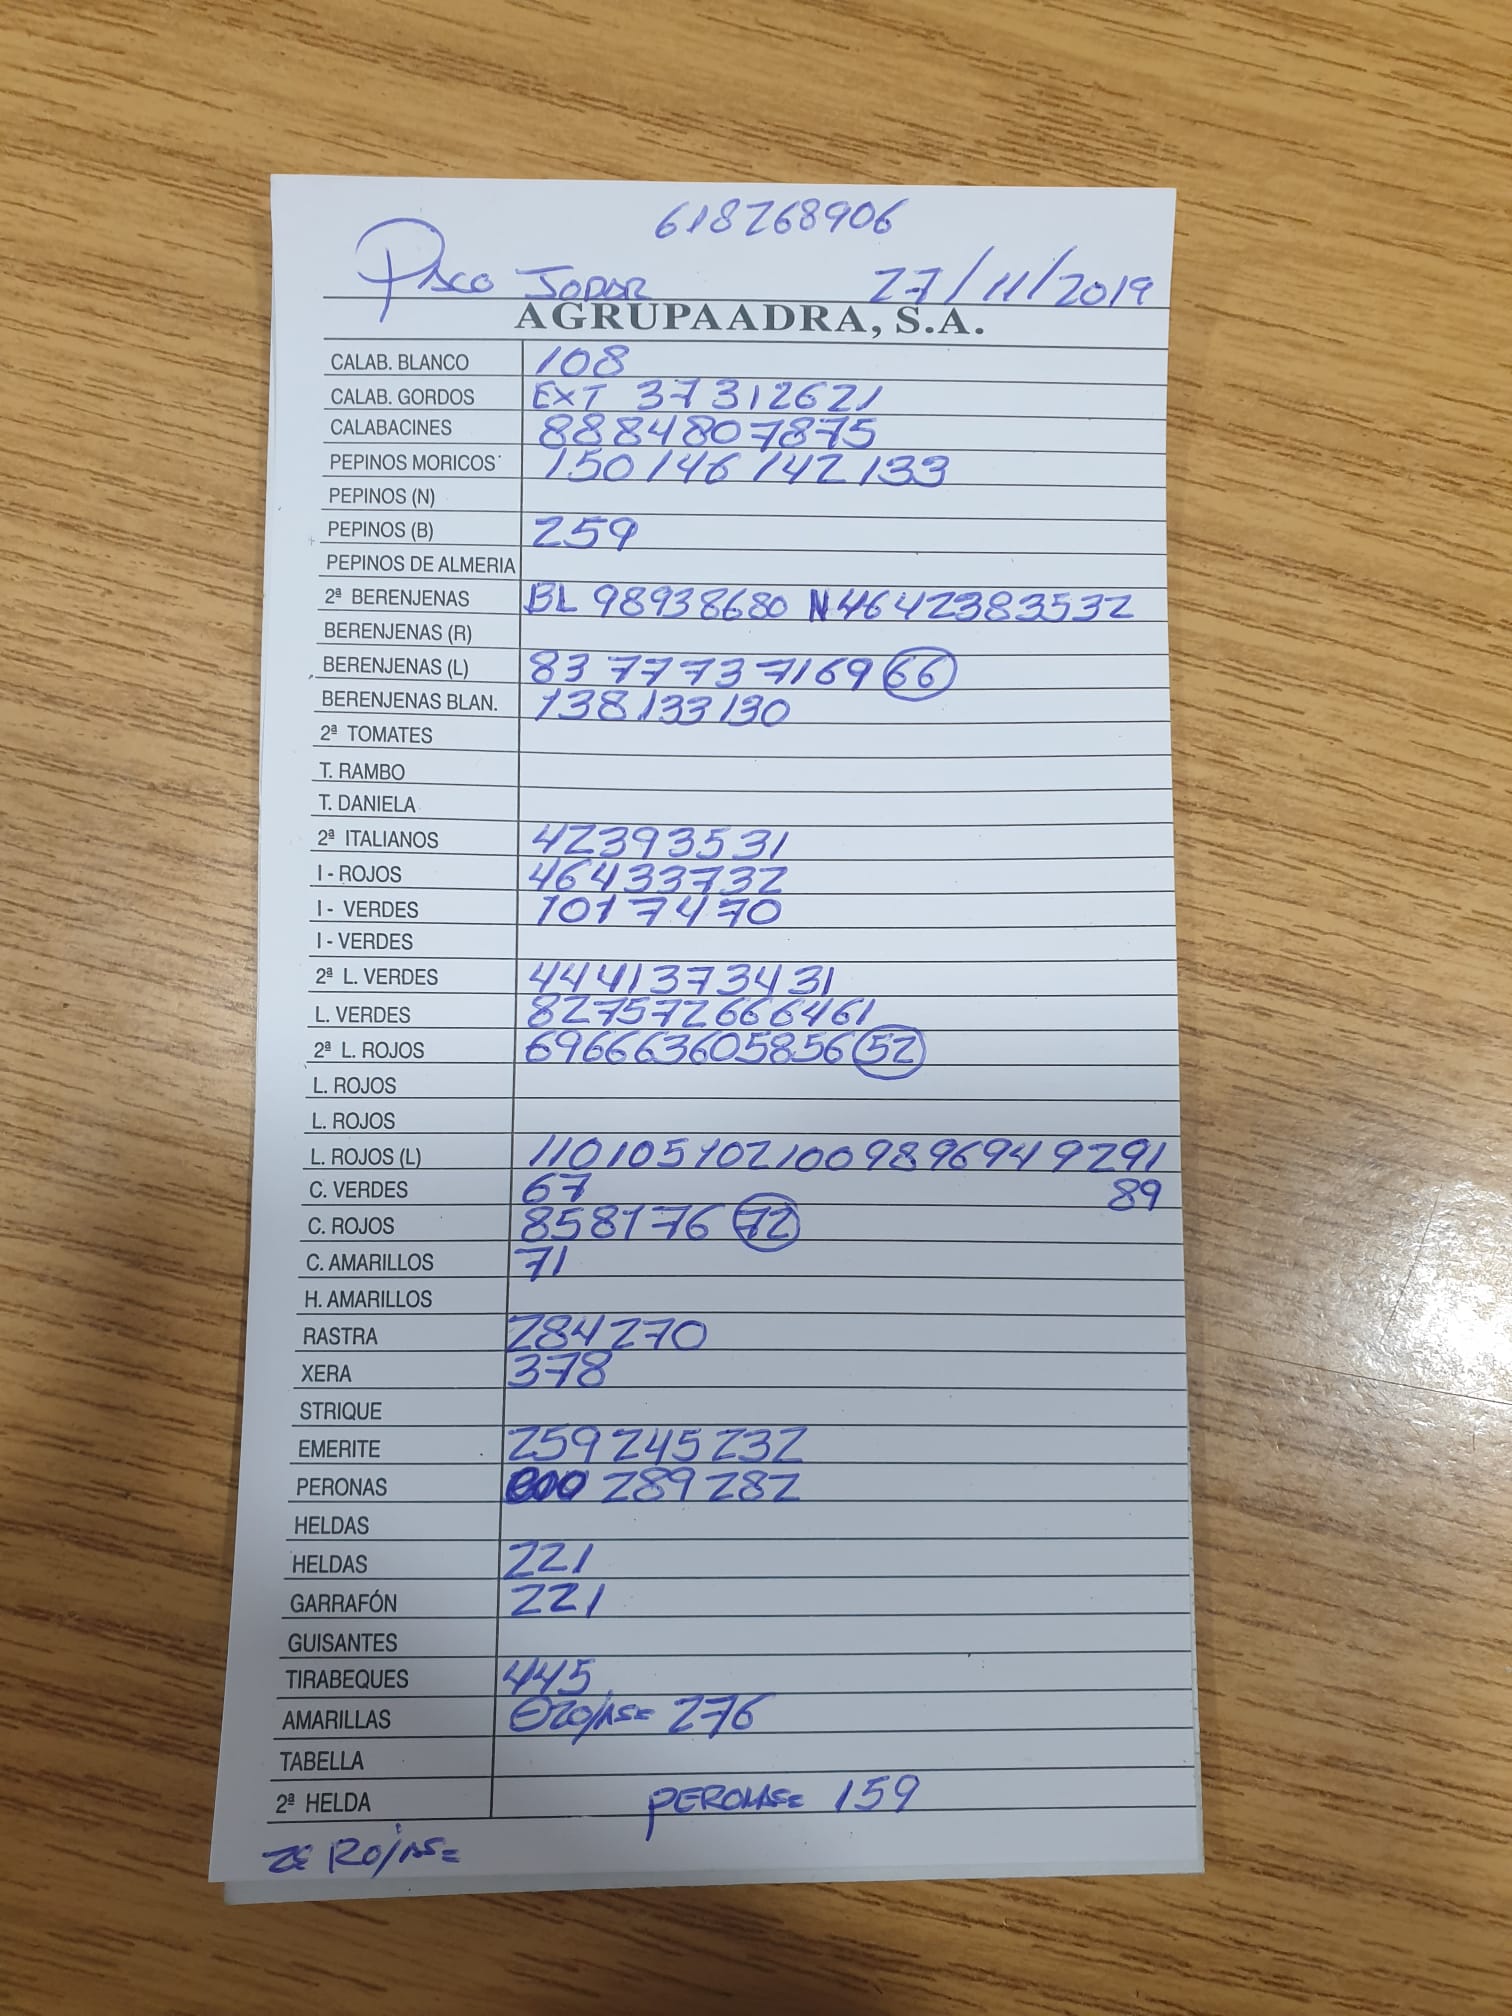 618268906
Paco Jodar 27/11/2019
AGRUPAADRA, S.A.
CALAB. BLANCO 108
CALAB. GORDOS EXT 37 31 26 21
CALABACINES 88 84 80 78 75
PEPINOS MORICOS 150 146 142 133
PEPINOS (N)
PEPINOS (B) 259
PEPINOS DE ALMERIA
2ª BERENJENAS BL 98 93 86 80 N 46 42 38 35 32
BERENJENAS (R)
BERENJENAS (L) 83 77 73 71 69 66
BERENJENAS BLAN. 138 133 130
2ª TOMATES
T. RAMBO
T. DANIELA
2ª ITALIANOS 42 39 35 31
I - ROJOS 46 43 37 32
I - VERDES 101 74 70
I - VERDES
2ª L. VERDES 44 41 37 34 31
L. VERDES 82 75 72 66 64 61
2ª L. ROJOS 69 66 63 60 58 56 52
L. ROJOS
L. ROJOS
L. ROJOS (L) 110 105 102 100 98 96 94 92 91
C. VERDES 67 89
C. ROJOS 85 81 76 72
C. AMARILLOS 71
H. AMARILLOS
RASTRA 284 270
XERA 378
STRIQUE
EMERITE 259 245 232
PERONAS 289 282
HELDAS
HELDAS 221
GARRAFÓN 221
GUISANTES
TIRABEQUES 445
AMARILLAS 276
TABELLA
2ª HELDA PERONAS= 159
ROJAS=